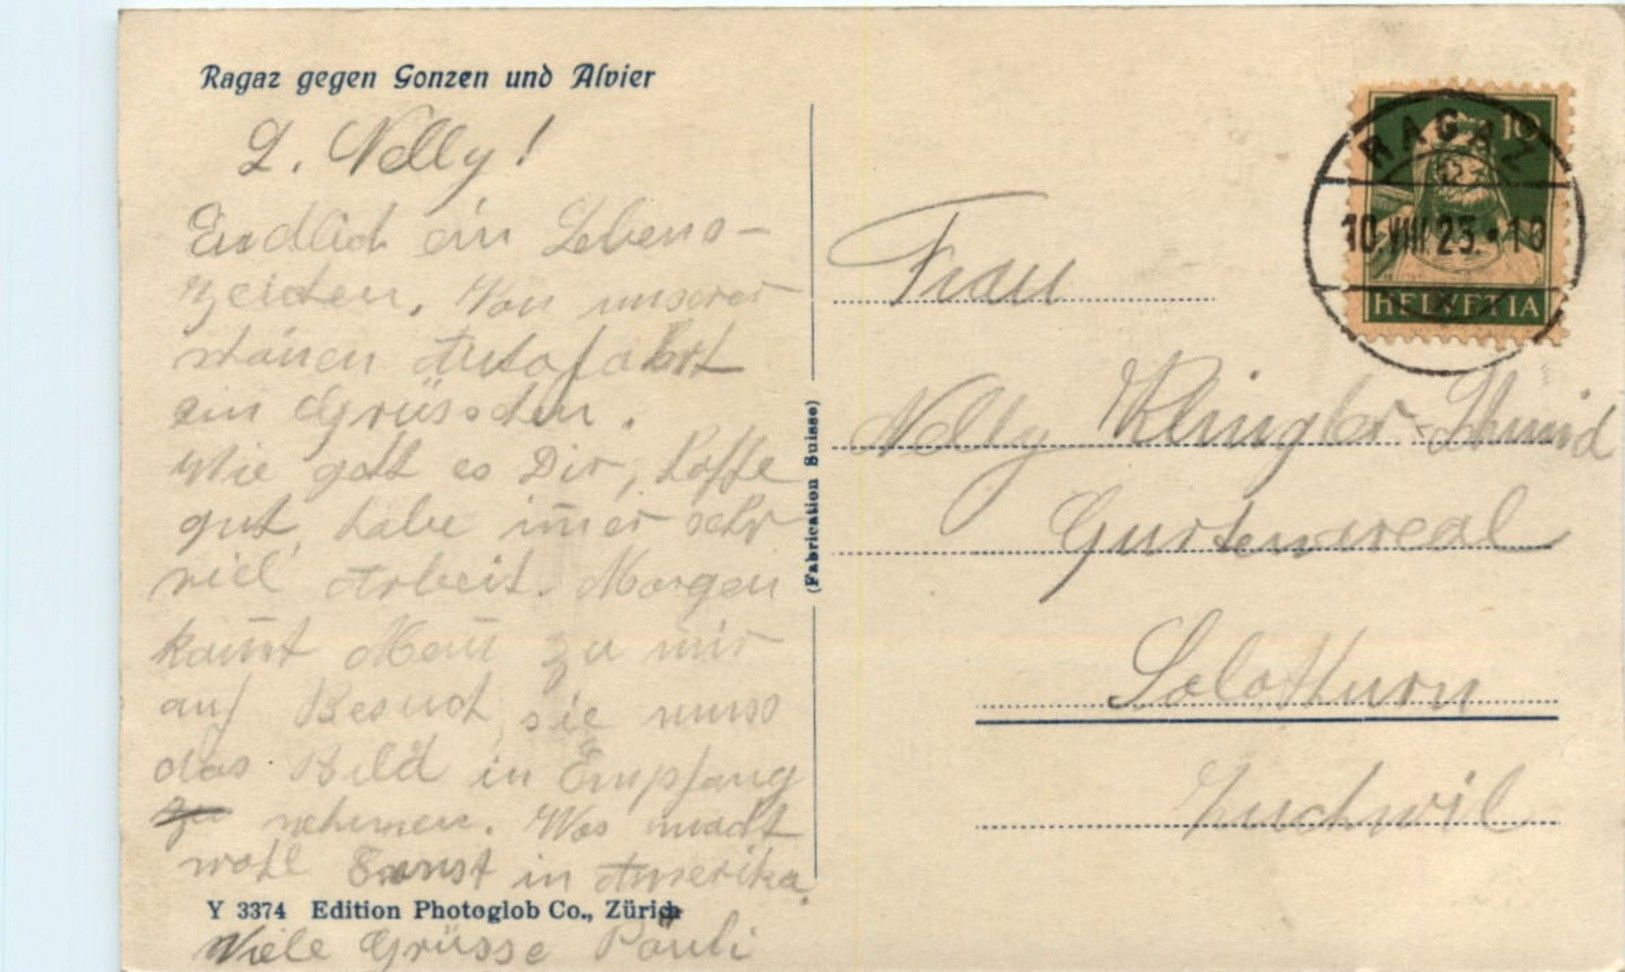 Ragaz gegen Gonzen und Alvier
L. Nelly!
Endlich ein Lebens-
zeichen. Von unserer
schönen Autofahrt
ein Grüsschen.
Wie geht es Dir, hoffe
gut, habe im̄er sehr
viel Arbeit. Morgen
kom̄t zu mir
auf Besuch, sie muss
das Bild in Empfang
zu nehmen. Was macht
wohl Ernst in Amerika.
Y 3374 Edition Photoglob Co., Zürich
Viele Grüsse
(Fabrication Suisse)
10
RAGAZ
10.VIII.25.•10
HELVETIA
Frau
Nelly Klingler-Schmid
Gurtenareal
Solothurn
Zuchwil